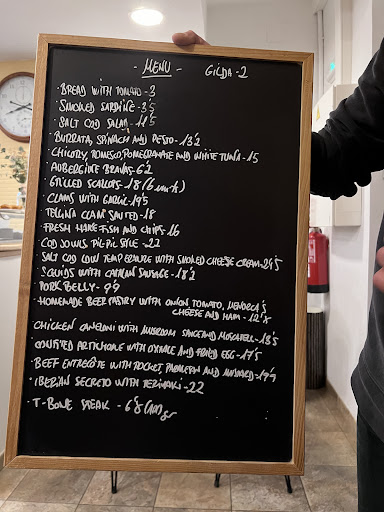 - MENU -   GILDA - 2
· BREAD WITH TOMATO - 3
· SMOKED SARDINE - 3'5
· SALT COD SALAD - 11'5
· BURRATA, SPINACH AND PESTO - 13'2
· CHICORY, ROMESCO, POMEGRANATE AND WHITE TUNA - 15
· AUBERGINE BRAVAS - 6'2
· GRILLED SCALLOPS - 18 (6 unit)
· CLAMS WITH GARLIC - 19'5
· TELLINA CLAM SAUTED - 18
· FRESH HAKE FISH AND CHIPS - 16
· COD JOWLS PIL-PIL STYLE - 22
· SALT COD LOW TEMPERATURE WITH SMOKED CHEESE CREAM - 24'5
· SQUIDS WITH CATALAN SAUSAGE - 18'2
· PORK BELLY - 9'9
· HOMEMADE BEER PASTRY WITH ONION, TOMATO, MENORCA'S
CHEESE AND HAM - 12'8
· CHICKEN CANELONI WITH MUSHROOM SAUCE AND MOSCATELL - 13'5
· CONFITED ARTICHOKE WITH OXTAIL AND FRIED EGG - 17'5
· BEEF ENTRECÔTE WITH ROCKET, PARMESAN AND MUSTARD - 19'9
· IBERIAN SECRETO WITH TERIYAKI - 22
· T-BONE STEAK - 6'5 (100 gr